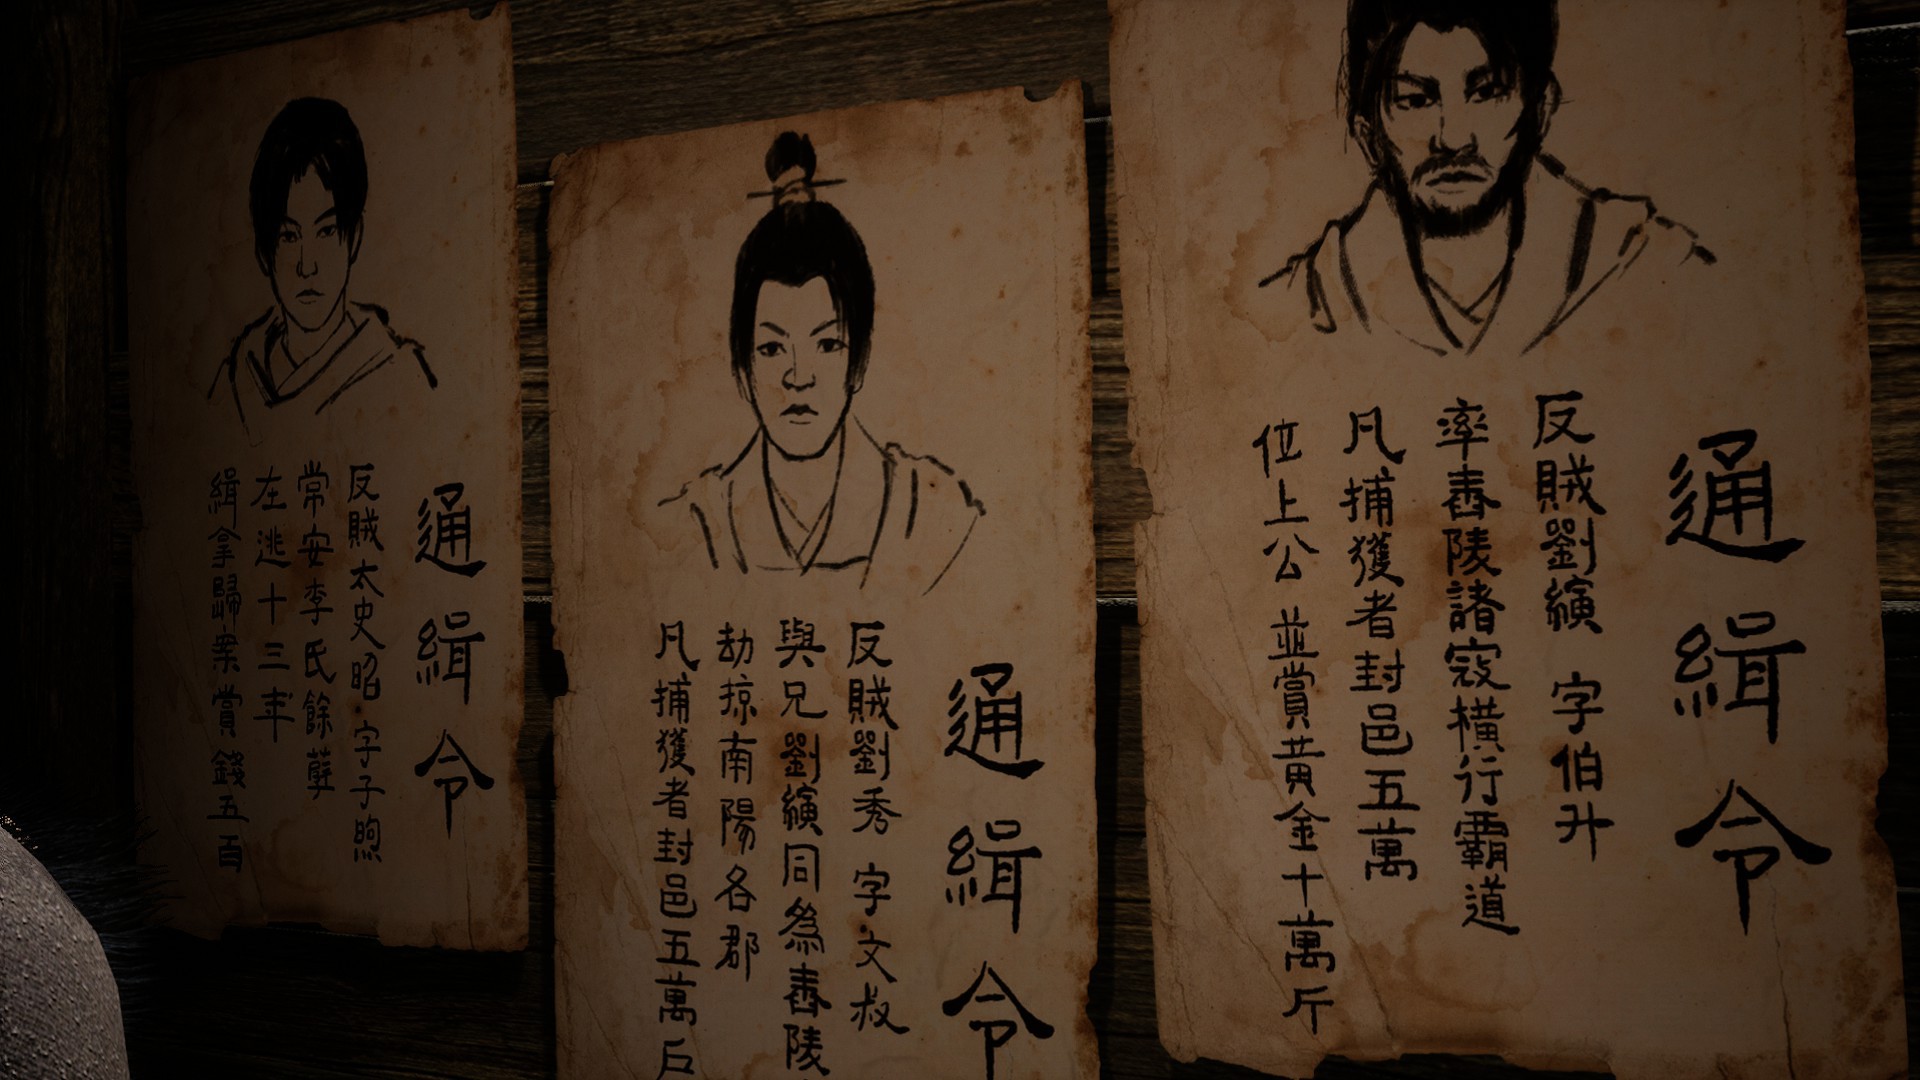 通緝令
反賊劉縯 字伯升
率舂陵諸寇橫行霸道
凡捕獲者封邑五萬
位上公 並賞黃金十萬斤
通緝令
反賊劉秀 字文叔
與兄劉縯同為舂陵
劫掠南陽各郡
凡捕獲者封邑五萬戶
通緝令
反賊太史昭 字子煦
常安李氏餘孽
在逃十三年
緝拿歸案賞錢五百